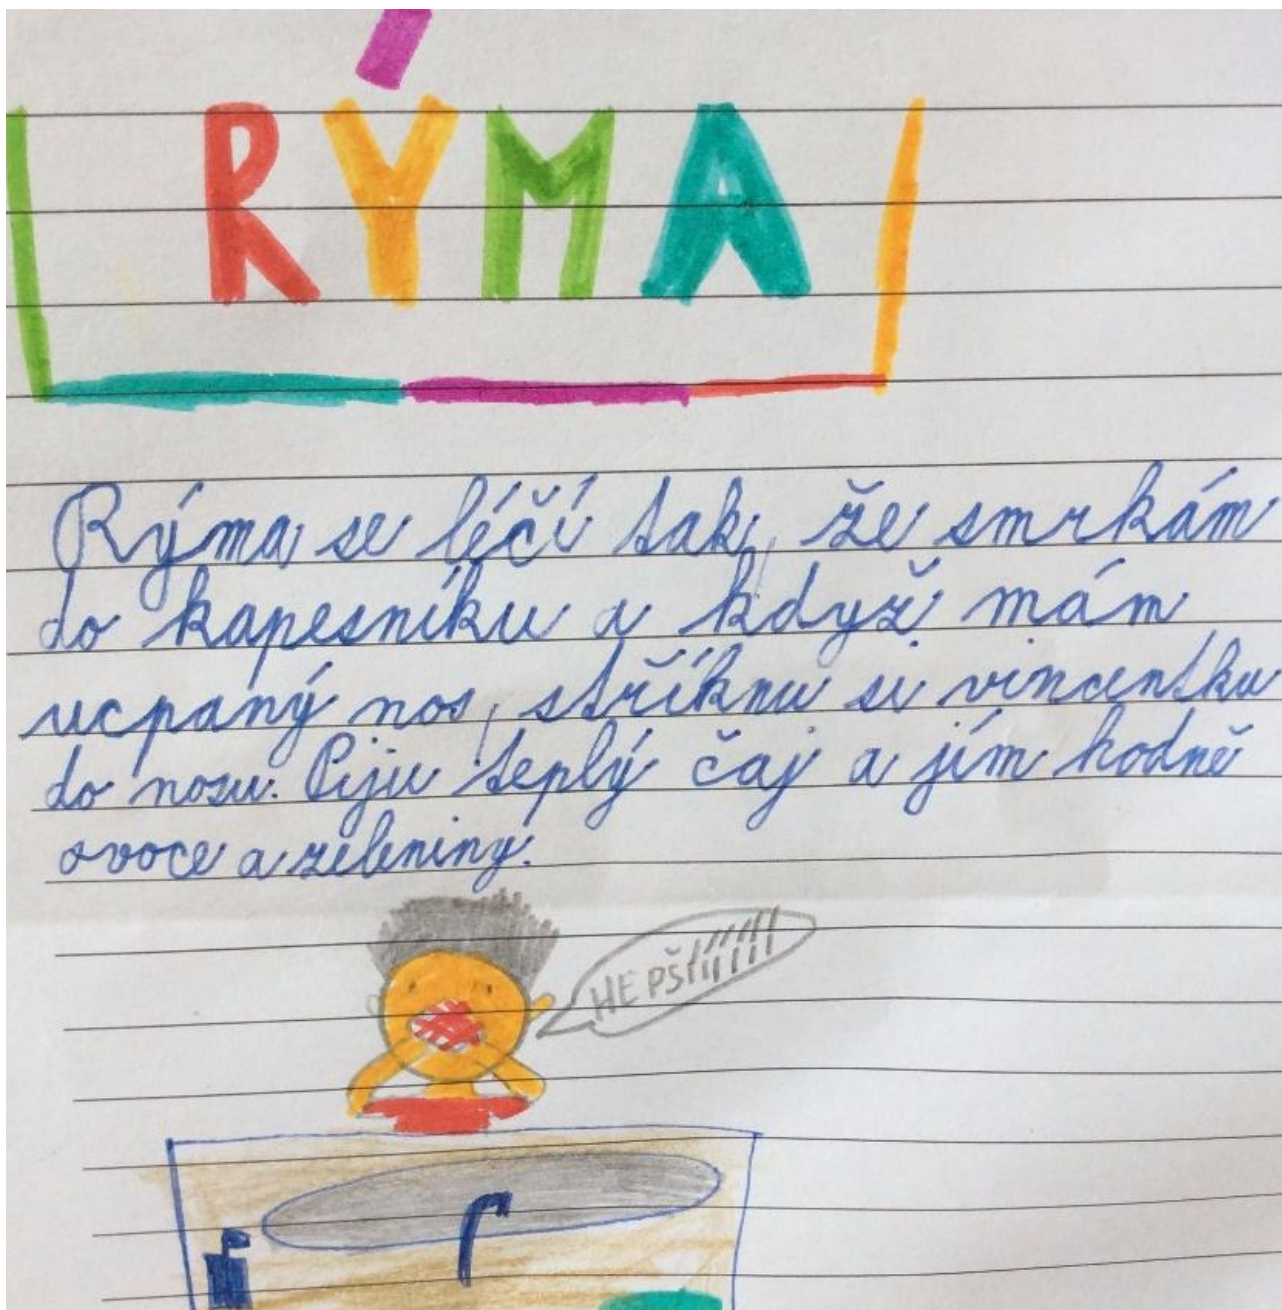 RÝMA
Rýma se léčí tak, že smrkám
do kapesníku a když mám
ucpaný nos, stříknu si vincentku
do nosu. Piju teplý čaj a jím hodně
ovoce a zeleniny.
HEPŠÍÍÍÍÍÍ